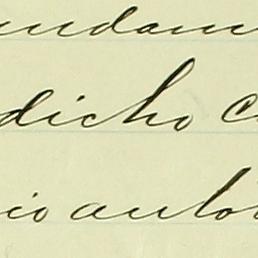 ndam
dicho C
io autó